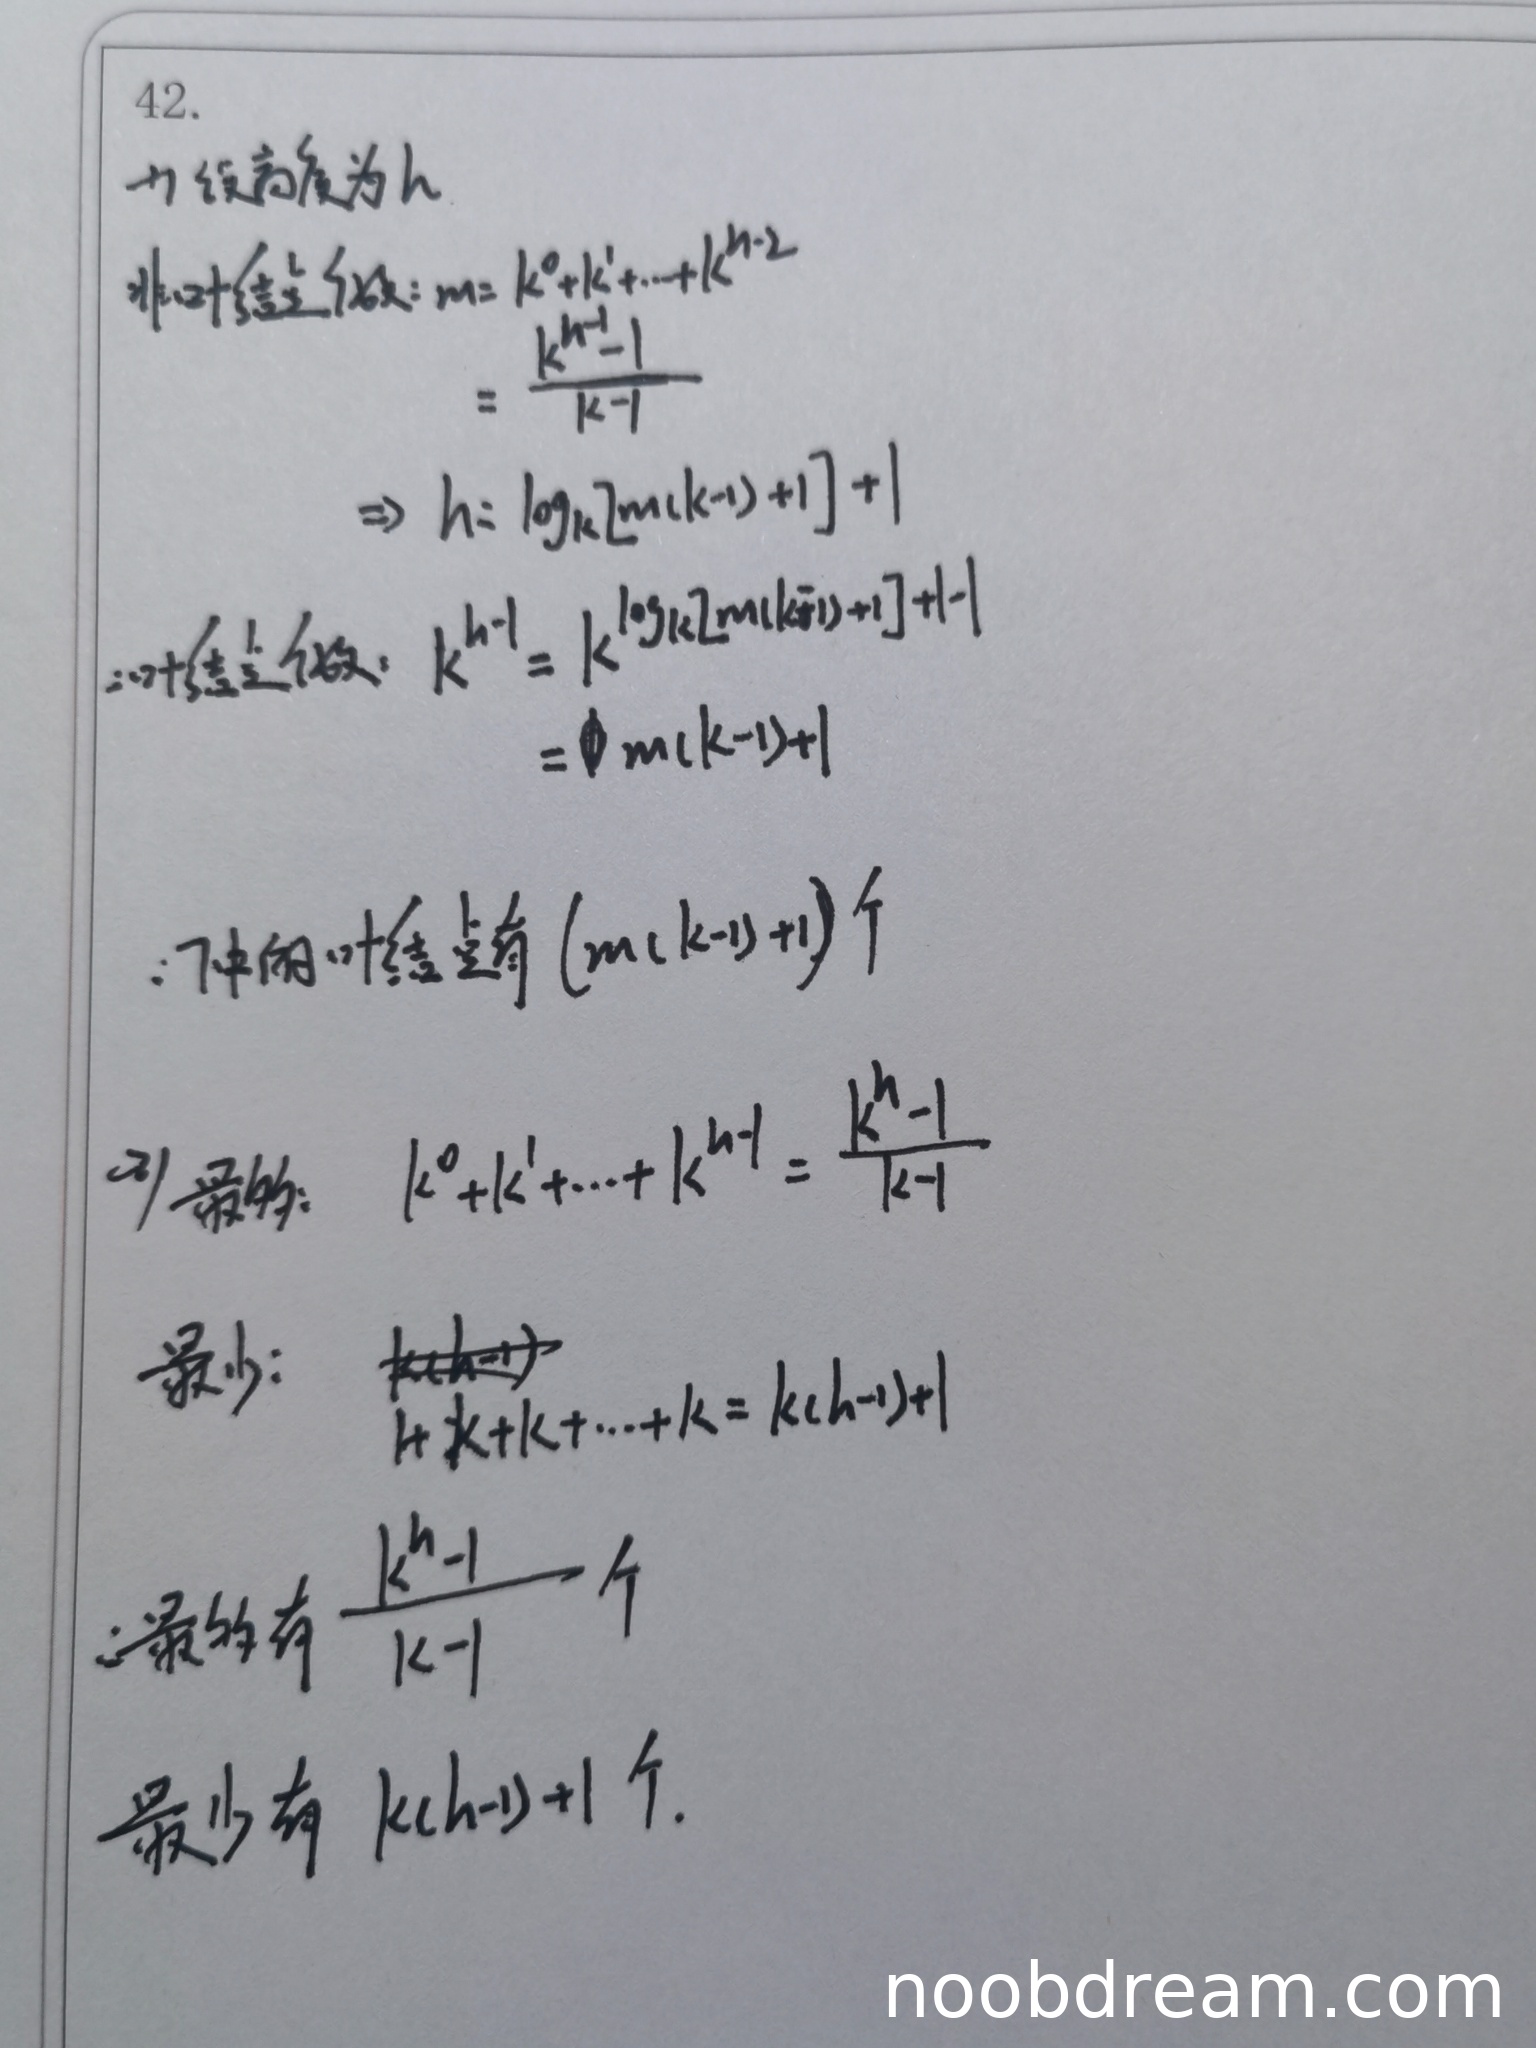 42.
(1) 设高度为h
非叶结点个数: m = k^0+k^1+...+k^{h-2}
= \frac{k^{h-1}-1}{k-1}
⇒ h = log_k[m(k-1)+1]+1
∴叶结点个数: k^{h-1} = k^{log_k[m(k-1)+1]+1-1}
= m(k-1)+1
∴T中的叶结点有 (m(k-1)+1)个
(2) 最多: k^0+k^1+...+k^{h-1} = \frac{k^h-1}{k-1}
最少:
1+k+k+...+k = k(h-1)+1
∴最多有 \frac{k^h-1}{k-1} 个
最少有 k(h-1)+1 个.
noobdream.com